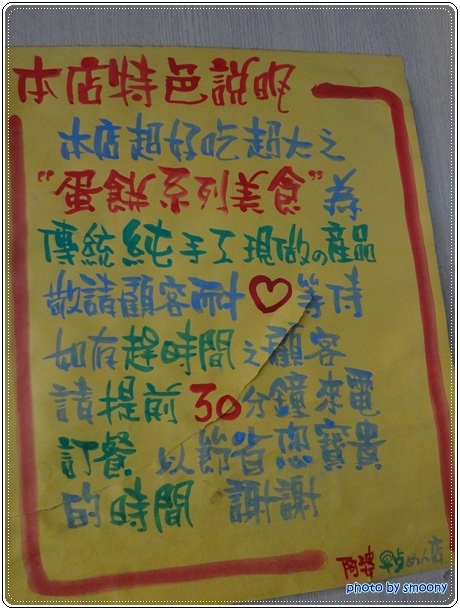 本店特色說明
本店超好吃超大之
"蛋餅系列美食"為
傳統純手工現做の產品
敬請顧客耐♡等待
如有趕時間之顧客
請提前30分鐘來電
訂餐 以節省您寶貴
的時間 謝謝
阿婆 店
photo by smoony